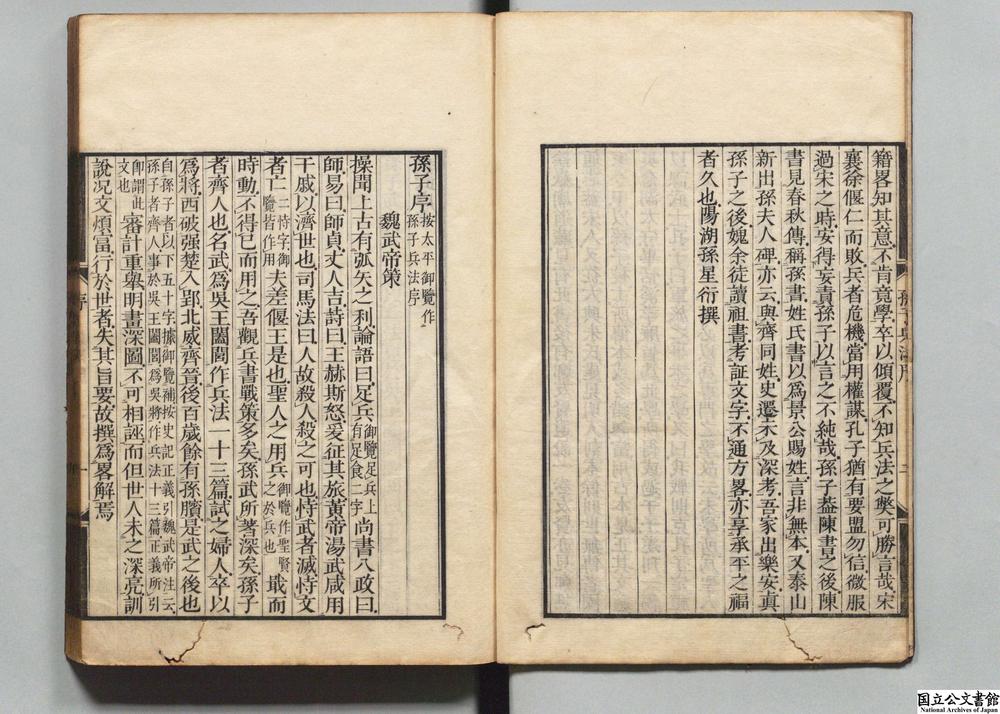 籍畧知其意不肯竟學卒以傾覆不知兵法之獘可勝言哉宋
襄徐偃仁而敗兵者危機當用權謀孔子猶有要盟勿信微服
過宋之時安得妄責孫子以言之不純哉孫子葢陳書之後陳
書見春秋傳稱孫書姓氏書以爲景公賜姓言非無本又泰山
新出孫夫人碑亦云與齊同姓史遷未及深考吾家出樂安真
孫子之後媿余徒讀祖書考証文字不通方畧亦享承平之福
者久也陽湖孫星衍撰
孫子兵法序
二
孫子序按太平御覽作孫子兵法序
魏武帝策
操聞上古有弧矢之利論語曰足兵御覽足兵上有足食二字尚書八政曰
師易曰師貞丈人吉詩曰王赫斯怒爰征其旅黃帝湯武咸用
干戚以濟世也司馬法曰人故殺人殺之可也恃武者滅恃文
者亡二恃字御覽皆作用夫差偃王是也聖人之用兵御覽作聖賢之於兵也戢而
時動不得已而用之吾觀兵書戰策多矣孫武所著深矣孫子
者齊人也名武爲吳王闔閭作兵法一十三篇試之婦人卒以
爲將西破强楚入郢北威齊晉後百歲餘有孫臏是武之後也
自孫子者以下五十字據御覽補按史記正義引魏武帝注云孫子者齊人事於吳王闔閭爲吳將作兵法十三篇正義所引
卽謂此文也審計重舉明畫深圖不可相誣而但世人未之深亮訓
說况文煩富行於世者失其旨要故撰爲畧解焉
序
国立公文書館
National Archives of Japan